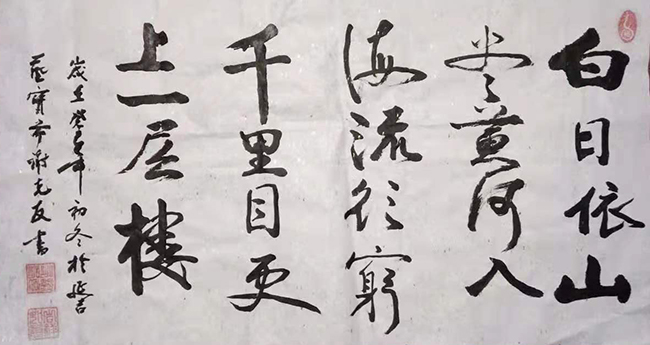 白日依山
尽黄河入
海流欲穷
千里目更
上一层楼
岁在癸卯年初冬於延吉
艺宝斋谢克友书